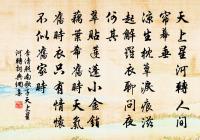 天上星河轉人間
簾幕垂
涼生枕簟淚痕滋
起解羅衣聊問夜
何其
翠貼蓮蓬小金銷
藕葉稀舊時天氣
舊時衣只有情懷
不似舊家時
李清照南歌子天上星
河轉